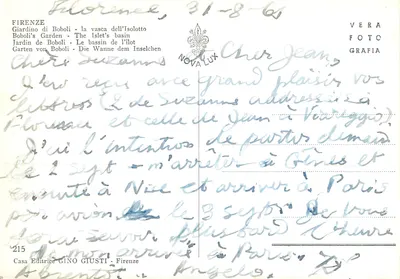 Florence, 31-8-61
FIRENZE
Giardino di Boboli - la vasca dell'Isolotto
Boboli's Garden - The Islet's basin
Jardin de Boboli - Le bassin de l'îlot
Garten von Boboli - Die Wanne dem Inselchen
NOVALUX
VERA
FOTO
GRAFIA
Chère Suzanne, Cher Jean,
J'ai reçu avec grand plaisir vos
lettres (de Suzanne addressée ici
Florence et celle de Jean à Viareggio).
J'ai l'intention de partir demain
le 1 sept - m'arrêter à Gênes et
ensuite à Nice et arriver à Paris
par avion le 9 sept. Je vous
plus tard l'heure
arrivée à Paris.
A bientôt. Angelo
215
Casa Editrice GINO GIUSTI - Firenze